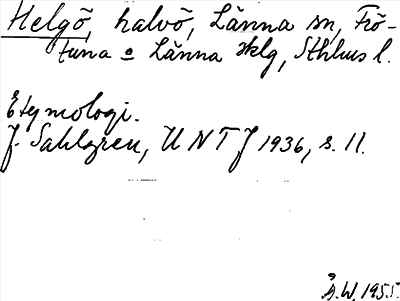 Helgö, halvö, Länna sn, Frö-
tuna o Länna sklg, Sthlms l.
Etymologi.
J. Sahlgren, UNTJ 1936, s. 11.
Å.W. 1955.